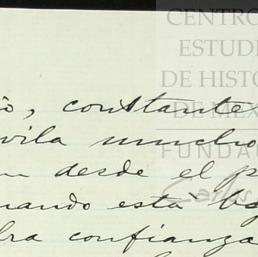 CENTRO
ESTUDI
DE HISTO
DE MÉX
FUNDA
Carlos
o, constante
vila mucho
n desde el p
uando está ba
bra confianza